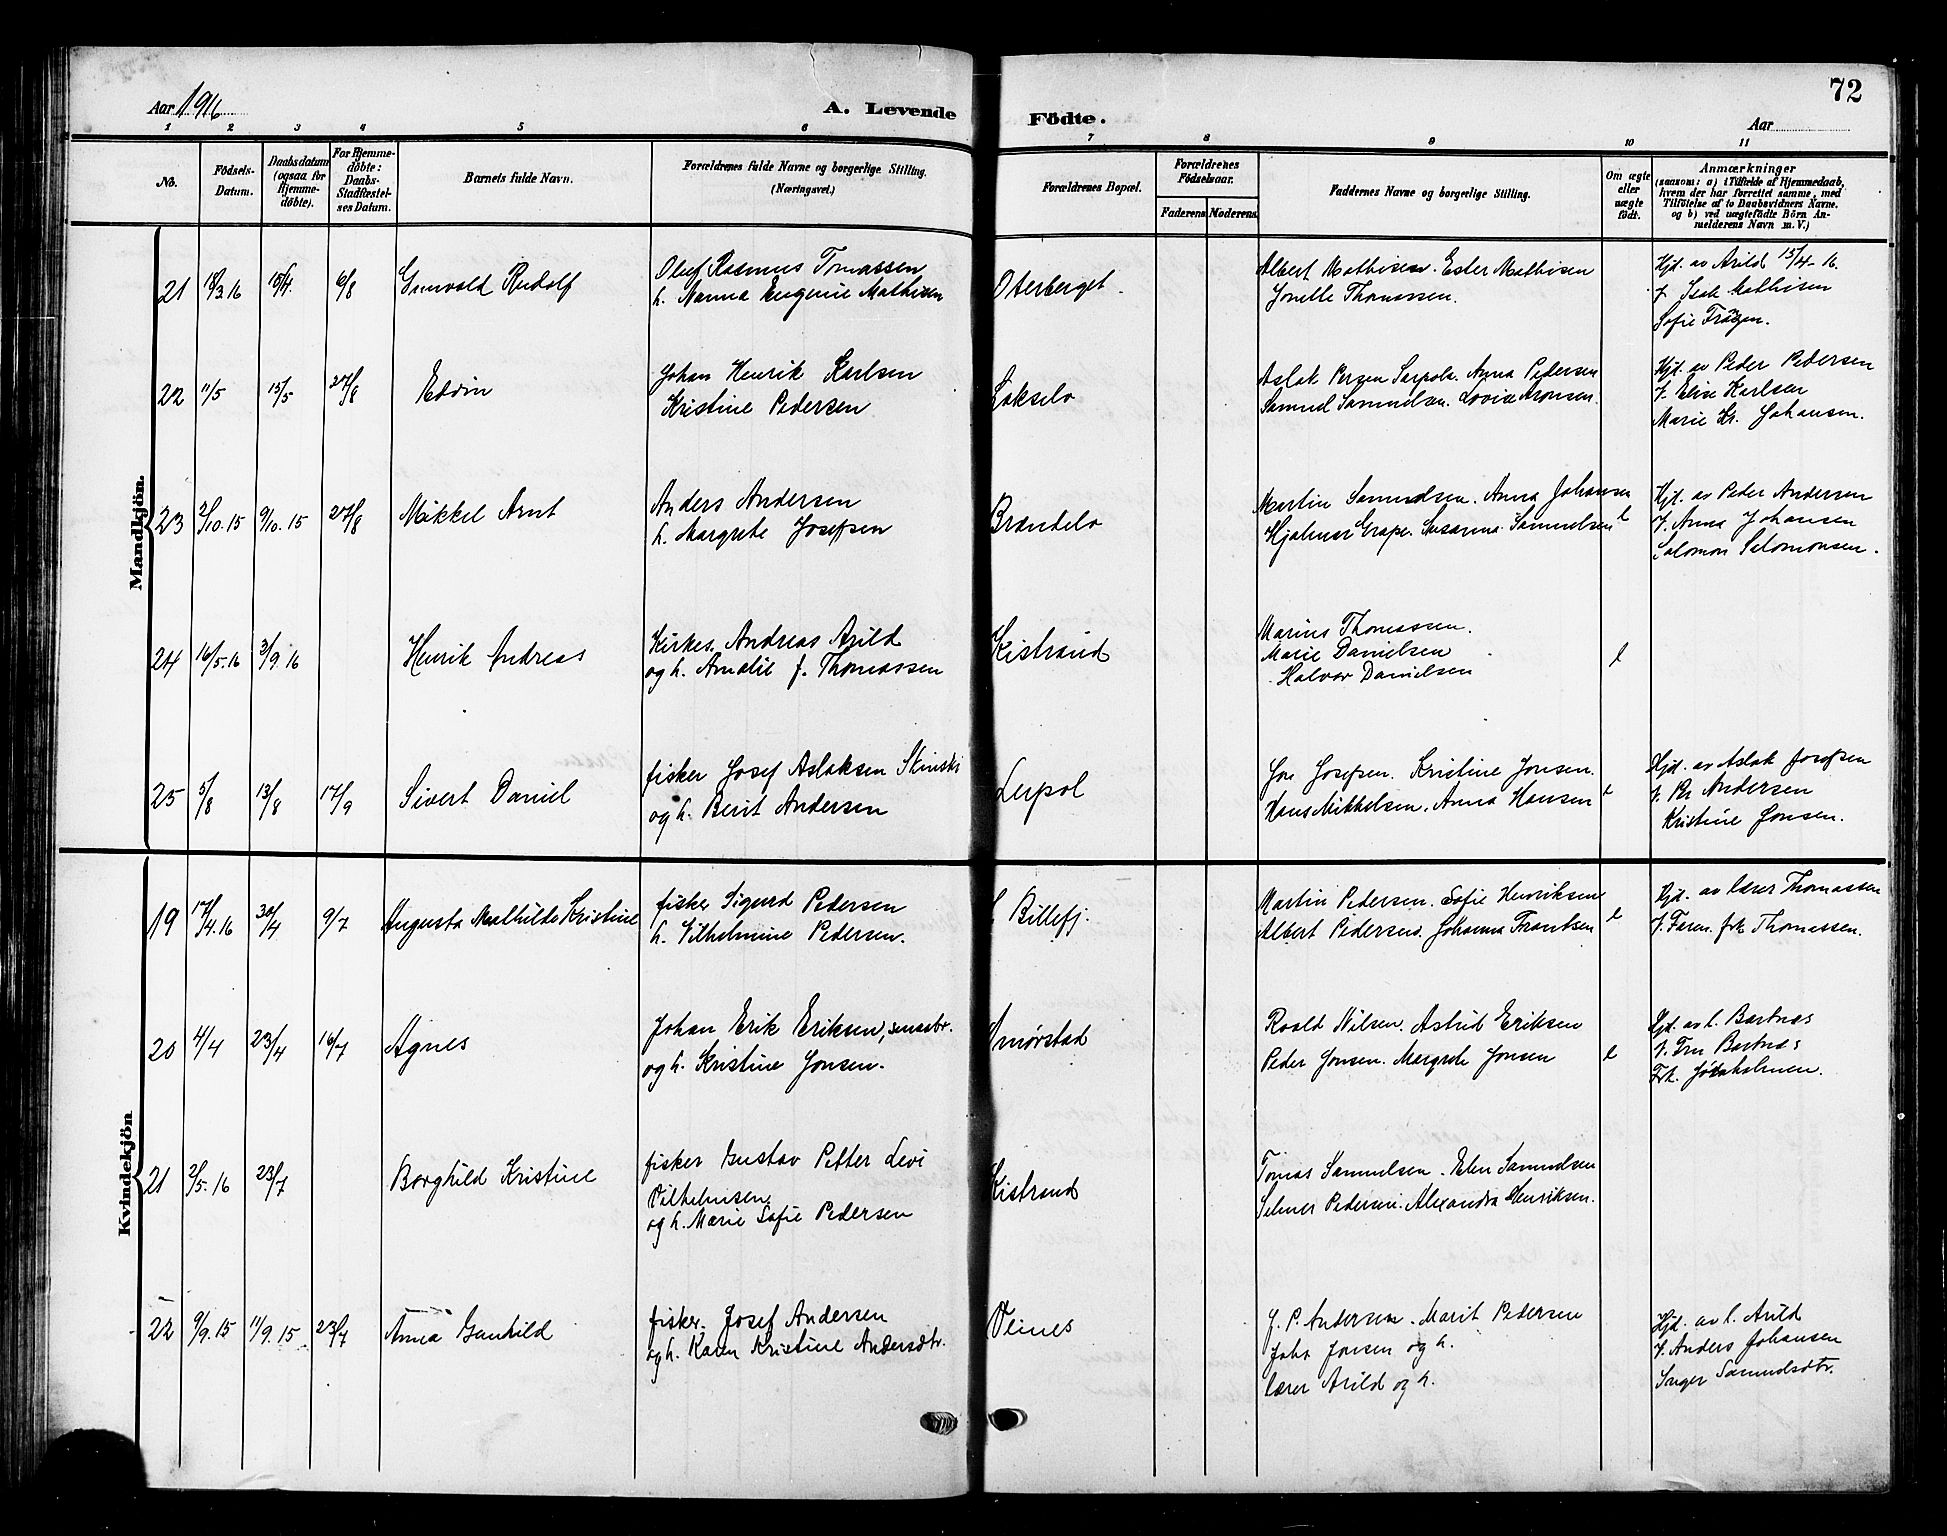 72
Aar 1916
A. Levende
Födte.
Aar
1 2 3 4 5 6 7 8 9 10 11
No.
Födsels-
Datum.
Daabsdatum
(ogsaa for
Hjemme-
döbte).
For Hjemme-
döbte:
Daabs-
Stadfæstel-
ses Datum.
Barnets fulde Navn.
Forældrenes fulde Navne og borgerlige Stilling.
(Næringsvei.)
Forældrenes Bopæl.
Forældrenes
Födselsaar.
Faderens. Moderens.
Faddernes Navne og borgerlige Stilling.
Om ægte
eller
uægte
födt.
Anmærkninger
(saasom: a) i Tilfælde af Hjemmedaab,
hvem der har forrettet samme, med
Tilföielse af to Daabsvidners Navne,
og b) ved uægtefödte Börn An-
melderens Navn m. V.)
Mandkjön.
21 18/3.16 15/4. 6/8 Gunvald Rudolf
Oluf Rasmus Tomassen
h. Nanna Eugenie Mathisen
Oterberget.
Albert Mathisen. Ester Mathisen
Jonelle Thomassen.
Hjd. av Arild 15/4-16.
V. Isak Mathisen
Sofie Franzen.
22 11/5 15/5 27/8 Edvin
Johan Henrik Karlsen
Kristine Pedersen
Lakselv
Aslak Persen Sarpola. Anna Pedersen
Samuel Samuelsen. Lovise Aronsen.
Hjd. av Peder Pedersen
V. Elise Karlsen
Marie Kr. Johansen.
23 2/10.15 9/10.15 27/8 Mikkel Arnt
Anders Andersen
h. Margrete Josefsen
Brændelv
Martin Samuelsen. Anna Johansen
Hjalmar Grape. Susanna Samuelsen e
Hjd. av Peder Andersen
V. Anna Johansen
Salomon Salomonsen.
24 16/5.16 3/9.16 Henrik Andreas
Kirkes. Andreas Arild
og h. Amalie f. Thomassen
Kistrand
Marius Thomassen.
Marie Danielsen
Halvor Danielsen
e
25 5/8 13/8 17/9 Sivert Daniel
fisker Josef Aslaksen Skinski
og h. Berit Andersen
Leirpol
Jon Josefsen. Kristine Jonsen.
Hans Mikkelsen. Anna Hansen e
Hjd. av Aslak Josefsen
V. Per Andersen
Kristine Jonsen.
Kvindekjön
19 17/4.16 30/4 9/7 Augusta Mathilde Kristine
fisker Sigurd Pedersen
h. Vilhelmine Pedersen.
Billefj.
Martin Pedersen. Sofie Henriksen
Albert Pedersen. Johanna Frantsen e
Hjd. av lærer Thomassen
V. Faren. frk Thomassen.
20 4/4 23/4 16/7 Agnes
Johan Erik Eriksen, smaabr.
og h. Kristine Jonsen.
Smørstad
Roald Nilsen. Astrid Eriksen
Peder Jonsen. Margrete Jonsen e
Hjd. av l. Bartnæs
V. Fru Bartnæs
Frk.
21 2/5.16 23/7 Borghild Kristine
fisker Gustav Petter Levi
Vilhelmsen
og h. Marie Sofie Pedersen
Kistrand
Tomas Samuelsen. Elen Samuelsen
Selmer Pedersen. Alexandra Henriksen.
22 9/9.15 11/9.15 23/7 Anna Gunhild
fisker. Josef Andersen
og h. Karen Kristine Andersdtr.
Veines
J. P. Andersen. Marit Pedersen
Johs Jonsen og h.
lærer Arild og h.
Hjd. av l. Arild
V. Anders Johansen
Inger Samuelsdtr.